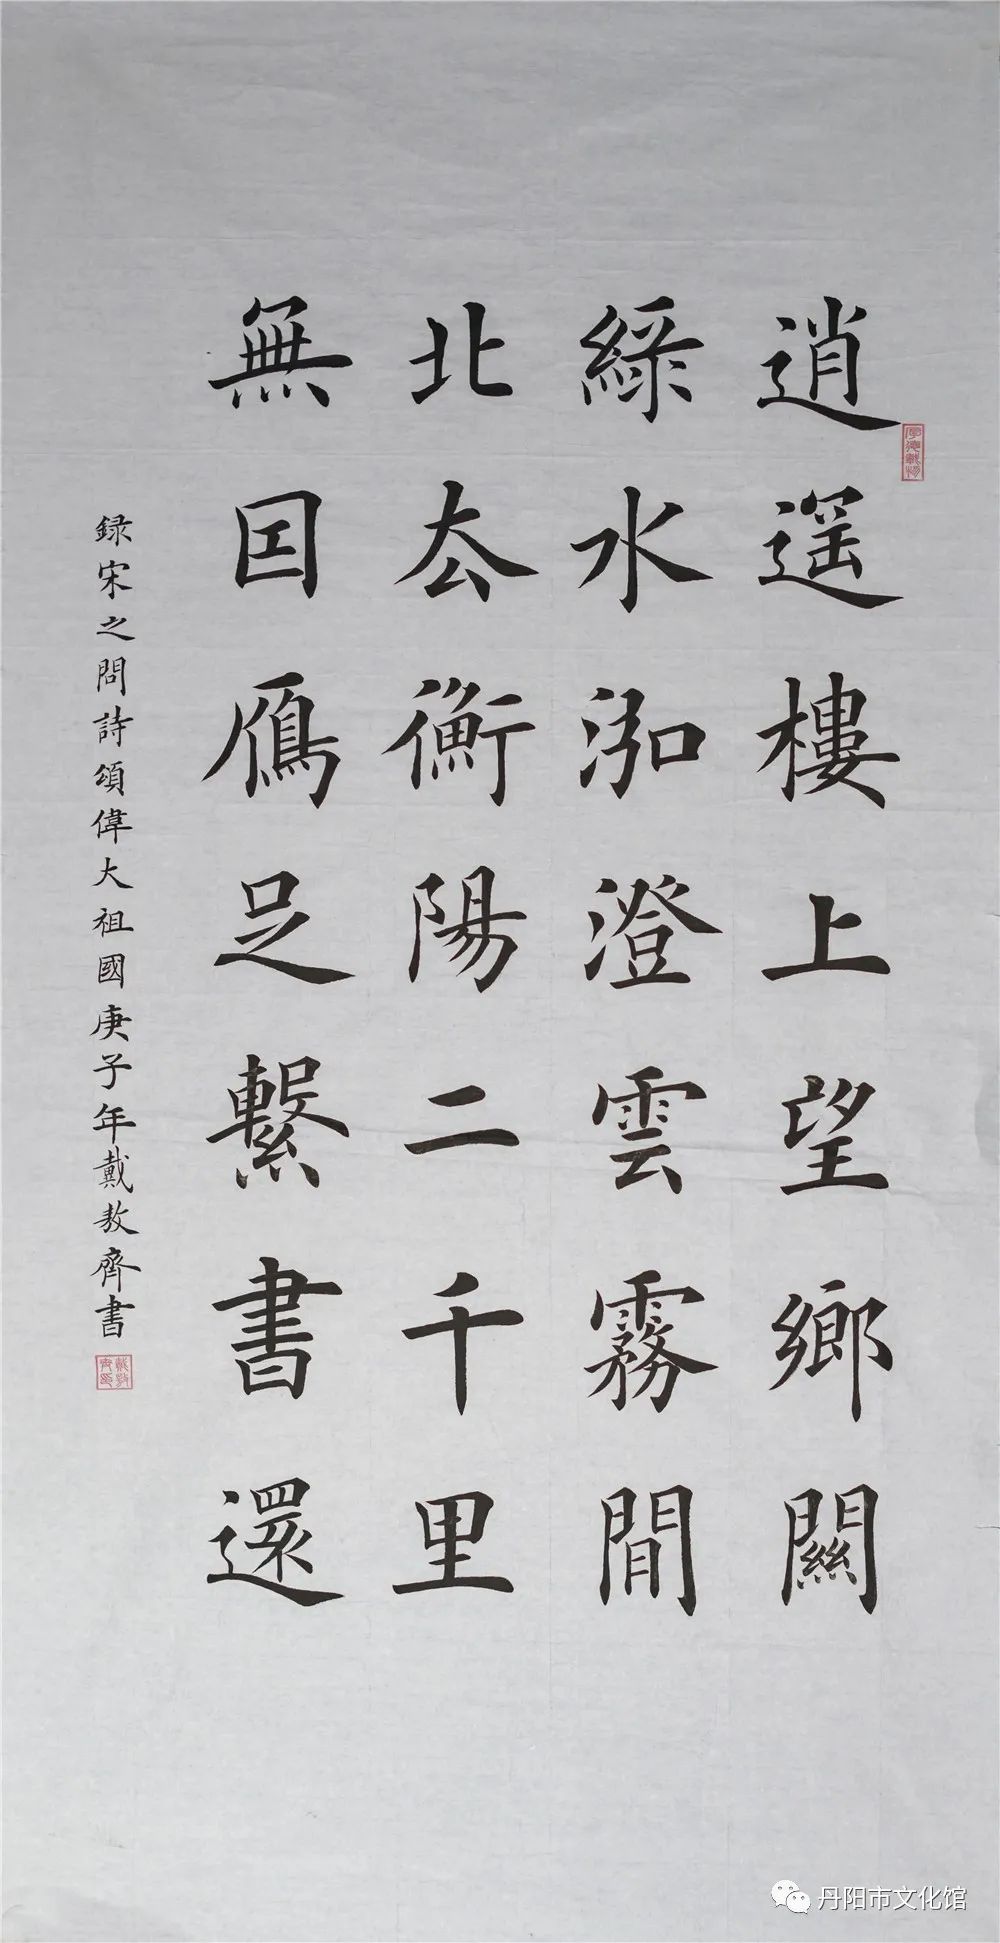 逍遥樓上望鄉關
綠水泓澄雲霧間
北去衡陽二千里
無因雁足繫書還
録宋之問詩頌偉大祖國庚子年戴敖齊書
厚德載物
丹阳市文化馆